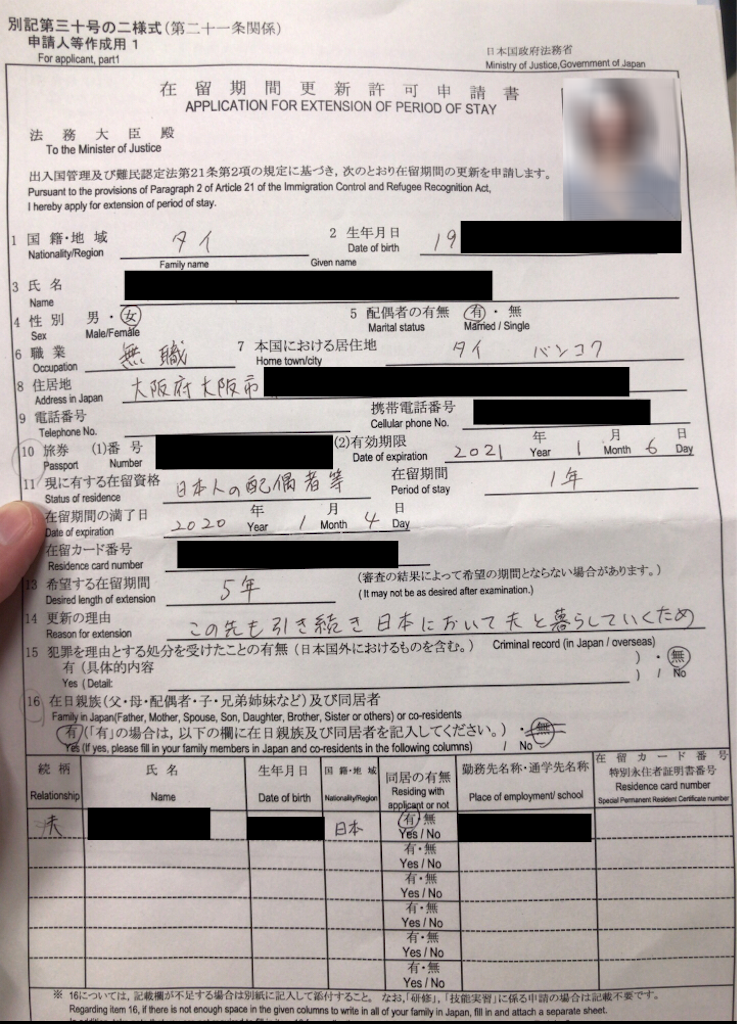 別記第三十号の二様式(第二十一条関係)
申請人等作成用 1
For applicant, part1
日本国政府法務省
Ministry of Justice,Government of Japan
在留期間更新許可申請書
APPLICATION FOR EXTENSION OF PERIOD OF STAY
法務大臣殿
To the Minister of Justice
出入国管理及び難民認定法第21条第2項の規定に基づき,次のとおり在留期間の更新を申請します。
Pursuant to the provisions of Paragraph 2 of Article 21 of the Immigration Control and Refugee Recognition Act,
I hereby apply for extension of period of stay.
1 国籍・地域 タイ 2 生年月日 19
Nationality/Region Date of birth
Family name Given name
3 氏名
Name
4 性別 男・女 5 配偶者の有無 有・無
Sex Male/Female Marital status Married / Single
6 職業 無職 7 本国における居住地 タイ バンコク
Occupation Home town/city
8 住居地 大阪府大阪市
Address in Japan
9 電話番号 携帯電話番号
Telephone No. Cellular phone No.
10 旅券 (1)番号 (2)有効期限 2021 年 1 月 6 日
Passport Number Date of expiration Year Month Day
11 現に有する在留資格 日本人の配偶者等 在留期間 1年
Status of residence Period of stay
在留期間の満了日 2020 年 1 月 4 日
Date of expiration Year Month Day
在留カード番号
Residence card number
13 希望する在留期間 5年 (審査の結果によって希望の期間とならない場合があります。)
Desired length of extension ( It may not be as desired after examination.)
14 更新の理由 この先も引き続き日本において夫と暮らしていくため
Reason for extension
15 犯罪を理由とする処分を受けたことの有無 (日本国外におけるものを含む。) Criminal record (in Japan / overseas)
有 (具体的内容 ) ・ 無
Yes (Detail: ) / No
16 在日親族(父・母・配偶者・子・兄弟姉妹など)及び同居者
Family in Japan(Father, Mother, Spouse, Son, Daughter, Brother, Sister or others) or co-residents
有(「有」の場合は,以下の欄に在日親族及び同居者を記入してください。)・無
Yes (If yes, please fill in your family members in Japan and co-residents in the following columns) / No
続柄 氏名 生年月日 国籍・地域 同居の有無 勤務先名称・通学先名称 在留カード番号
特別永住者証明書番号
Relationship Name Date of birth Nationality/Region Residing with applicant or not Place of employment/ school Residence card number
Special Permanent Resident Certificate number
夫 日本 有・無
Yes / No
有・無
Yes / No
有・無
Yes / No
有・無
Yes / No
有・無
Yes / No
有・無
Yes / No
※ 16については,記載欄が不足する場合は別紙に記入して添付すること。なお,「研修」,「技能実習」に係る申請の場合は記載不要です。
Regarding item 16, if there is not enough space in the given columns to write in all of your family in Japan, fill in and attach a separate sheet.